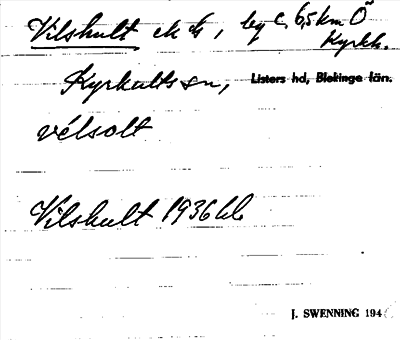 Vilshult ek h, by c. 6,5 km Ö
Kyrkh.
Kyrkults sn, Listers hd, Blekinge län.
vélsolt
Vilshult 1936 kb
J. SWENNING 194